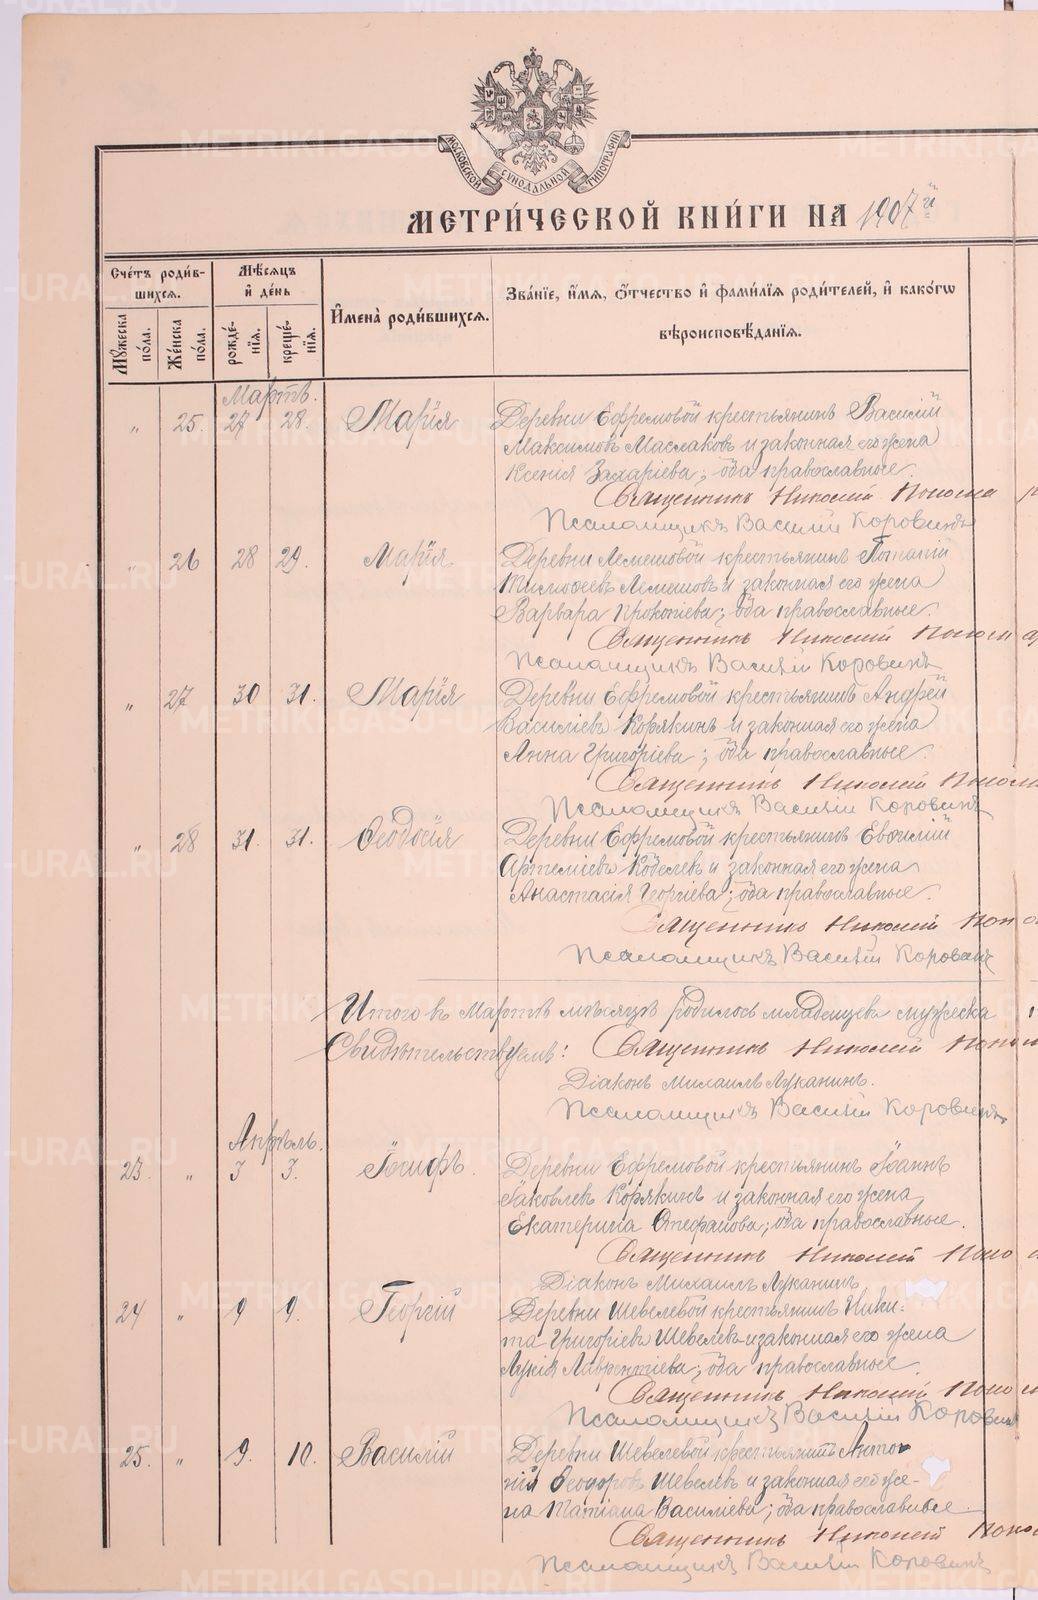 МОСКОВСКОЙ СѴНОДАЛЬНОЙ ТИПОГРАФІИ
МЕТРИ́ЧЕСКОЙ КНИ́ГИ НА 1907 й
Счётъ роди́вшихся.
Мꙋ́жеска по́ла.
Же́нска по́ла.
Мѣ́сяцъ и҆ де́нь
рожде́нїя.
креще́нїя.
И҆мена̀ роди́вшихся.
Зва́нїе, и҆́мѧ, ѻ҆́тчество и҆ фами́лїѧ роди́телей, и҆ како́гѡ
вѣроисповѣ́данїѧ.
Мартъ.
" 25. 27 28. Марія
Деревни Ефремовой крестьянинъ Василій
Максимовъ Маслаковъ и законная его жена
Ксенія Захаріева; оба православные.
Священникъ Николай
Псаломщикъ Василій Коровинъ
" 26 28 29. Марія
Деревни Лемешовой крестьянинъ Потапій
Тимофеевъ Лемешовъ и законная его жена
Варвара Прокопіева; оба православные.
Священникъ Николай
Псаломщикъ Василій Коровинъ
" 27 30 31. Марія
Деревни Ефремовой крестьянинъ Андрей
Василіевъ Корякинъ и законная его жена
Анна Григоріева; оба православные.
Священникъ Николай
Псаломщикъ Василій Коровинъ
" 28 31. 31. Ѳеодосія
Деревни Ефремовой крестьянинъ Евѳимій
Артеміевъ Кобелевъ и законная его жена
Анастасія Георгіева; оба православные.
Священникъ Николай
Псаломщикъ Василій Коровинъ
Итого въ Мартѣ мѣсяцѣ родилось младенцевъ мужеска
Свидѣтельствуемъ: Священникъ Николай
Діаконъ Михаилъ Луканинъ.
Псаломщикъ Василій Коровинъ
Апрѣль.
23. " 3 3. Іосифъ.
Деревни Ефремовой крестьянинъ Іоаннъ
Іаковлевъ Корякинъ и законная его жена
Екатерина Стефанова; оба православные.
Священникъ Николай
Діаконъ Михаилъ Луканинъ
24 " 9 9. Георгій
Деревни Шевелевой крестьянинъ Ники-
та Григоріевъ Шевелевъ и законная его жена
Лукія Лаврентіева; оба православные.
Священникъ Николай
Псаломщикъ Василій Коровин
25. " 9. 10. Василій
Деревни Шевелевой крестьянинъ Анто-
ній Ѳеодоровъ Шевелевъ и законная его же-
на Татіана Василіева; оба православные.
Священникъ Николай
Псаломщикъ Василій Коровинъ
METRIKI.GASO-URAL.RU